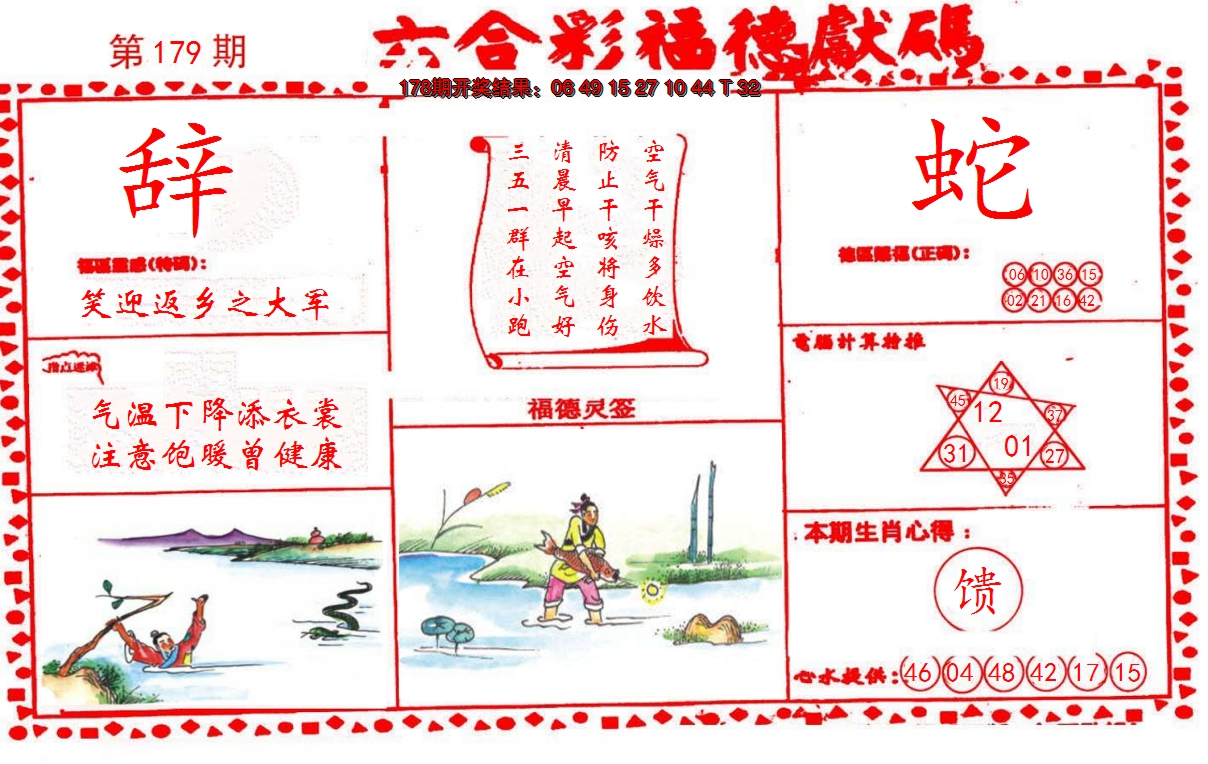 第179期
六合彩福德獻碼
178期开奖结果：06 49 15 27 10 44 T 32
辞
福區靈感(特碼)：
笑迎返乡之大军
指点迷津
气温下降添衣裳
注意饱暖曾健康
空气干燥多饮水
防止干咳将身伤
清晨早起空气好
三五一群在小跑
福德灵签
蛇
德區賜福(正碼)：
06 10 36 15
02 21 16 42
電腦计算推
19
45 12 37
31 01 27
35
本期生肖心得：
馈
心水提供：46 04 48 42 17 15